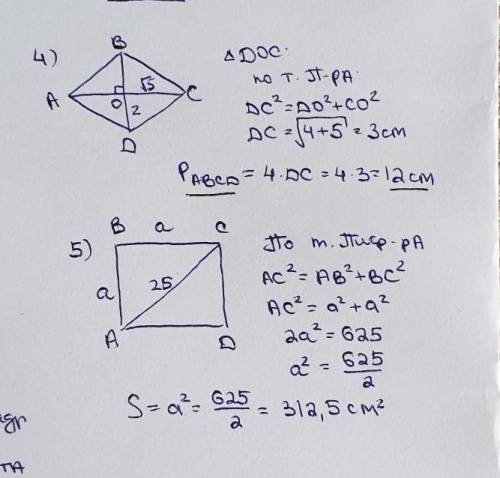 4)
B
A
C
D
O
√5
2
△DOC:
по т. П-рА:
DC² = DO² + CO²
DC = √4+5 = 3 cm
P_ABCD = 4·DC = 4·3 = 12 cm
5)
B a C
a
25
A D
По т. Пиф-рА
AC² = AB² + BC²
AC² = a² + a²
2a² = 625
a² = 625/2
S = a² = 625/2 = 312,5 cm²